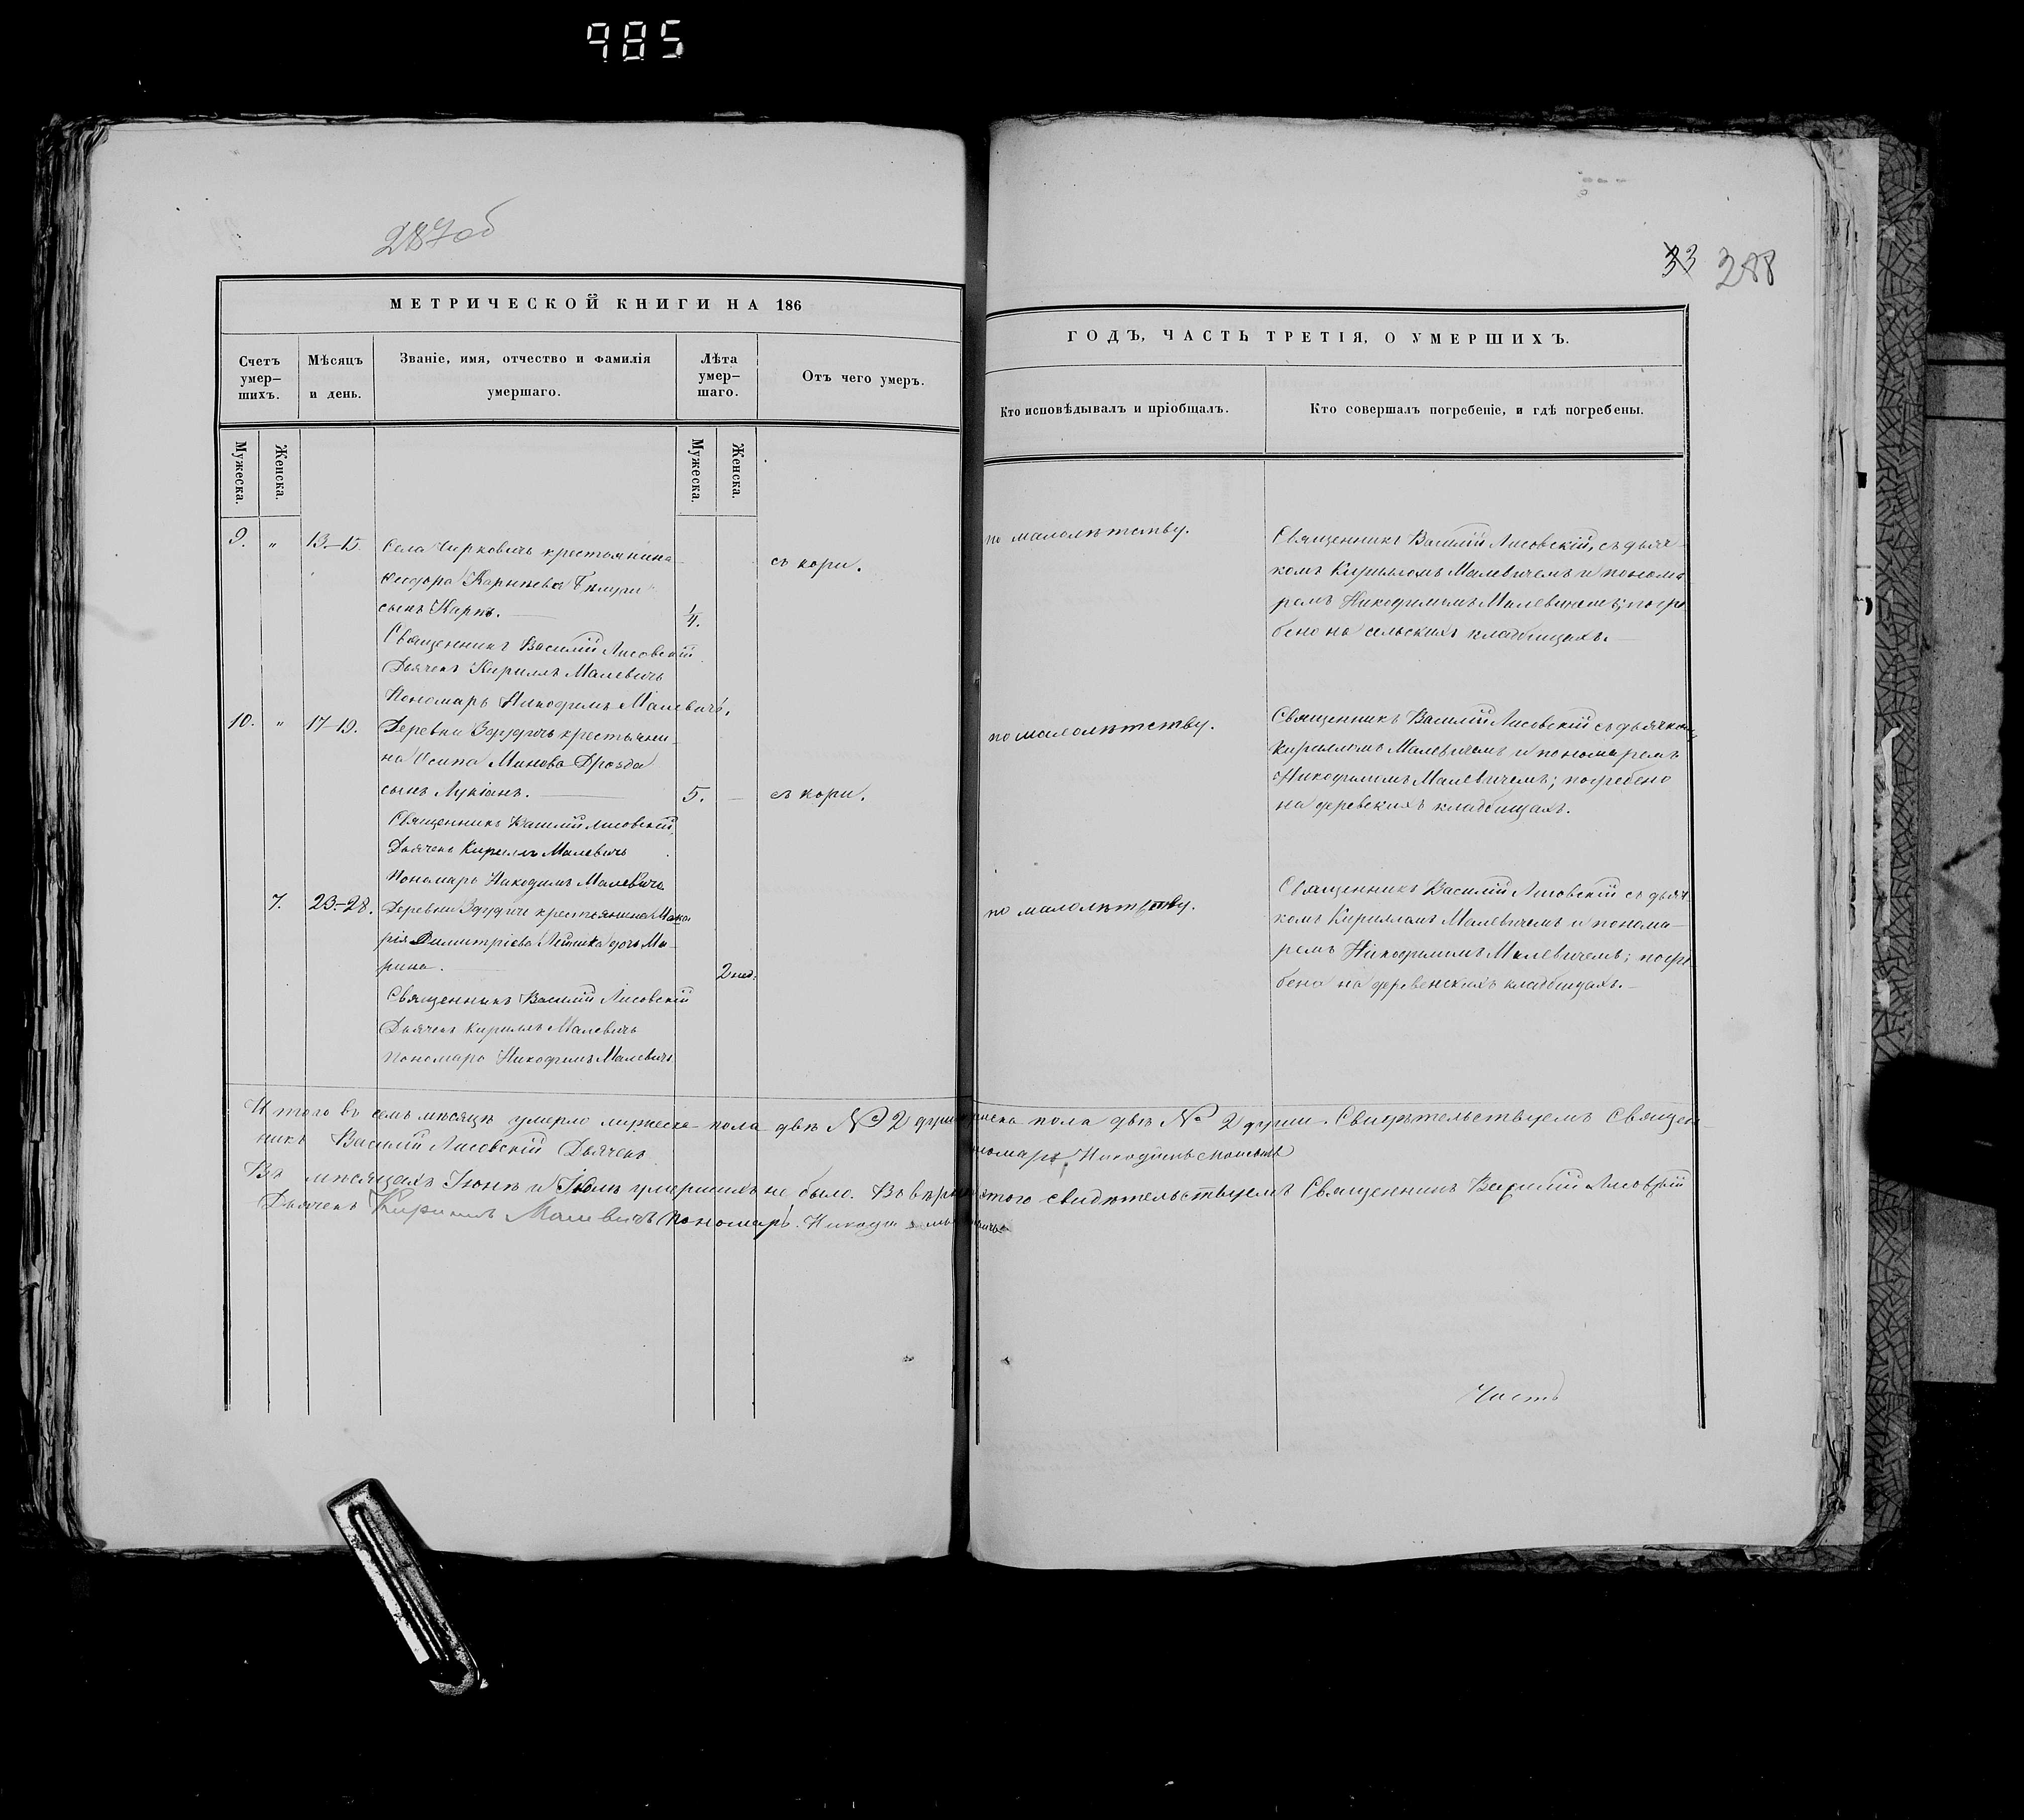 985
287об
33 288
МЕТРИЧЕСКОЙ КНИГИ НА 186
Счетъ умер—шихъ.
Мѣсяцъ и день.
Званіе, имя, отчество и фамилія умершаго.
Лѣта умер—шаго.
Отъ чего умеръ.
Мужеска.
Женска.
Мужеска.
Женска.
9. „ 13.–15
Села Чирковичъ крестьянина
Ѳеодора Карнѣева
сынъ Карпъ. —
1/4.
съ кори.
Священникъ Василій Лисовскій
Дьячекъ Кирилъ Малевичъ
Пономарь Никодимъ Малевичъ.
10. „ 17–19.
Деревни Здудичъ крестьяни—
на Осипа Минова Дрозда
сынъ Лукіанъ. —
5. —
съ кори.
Священникъ Василій Лисовскій,
Дьячекъ Кирилъ Малевичъ
Пономарь Никодимъ Малевичъ
7. 23.–28.
Деревни Здудичъ крестьянина Мака
рія Димитріева дочь Ма—
рина. —
2 нед.
Священникъ Василій Лисовскій
Дьячекъ Кирилъ Малевичъ
Пономарь Никодимъ Малевичъ
ГОДЪ, ЧАСТЬ ТРЕТІЯ, О УМЕРШИХЪ.
Кто исповѣдывалъ и пріобщалъ.
Кто совершалъ погребеніе, и гдѣ погребены.
по малолѣтству.
Священникъ Василій Лисовскій, съ дьяч
комъ Кирилломъ Малевичемъ и понома
ремъ Никодимомъ Малевичемъ; погре
бено на сельскихъ кладбищахъ. —
по малолѣтству.
Священникъ Василій Лисовскій съ дьячкомъ
Кирилломъ Малевичемъ и пономаремъ
Никодимимъ Малевичемъ; погребено
на деревскихъ кладбищахъ.
по малолѣтству.
Священникъ Василій Лисовскій съ дьяч
комъ Кирилломъ Малевичемъ и понома—
ремъ Никодимимъ Малевичемъ; погре
бена на деревенскихъ кладбищахъ. —
Итого въ семъ мѣсяцѣ умерло мужеска пола двѣ № 2 души женска пола двѣ № 2 души. Свидѣтельствуемъ Священ—
никъ Василій Лисовскій Дьячекъ Пономарь Никодимъ Малевичъ
Въ мѣсяцахъ Іюнѣ и Іюлѣ умершихъ не было. Въ вѣрности этого свидѣтельствуемъ Священникъ Василій Лисовскій
Дьячекъ Кириллъ Малевичъ Пономарь Никодимъ Малевичъ
Часть